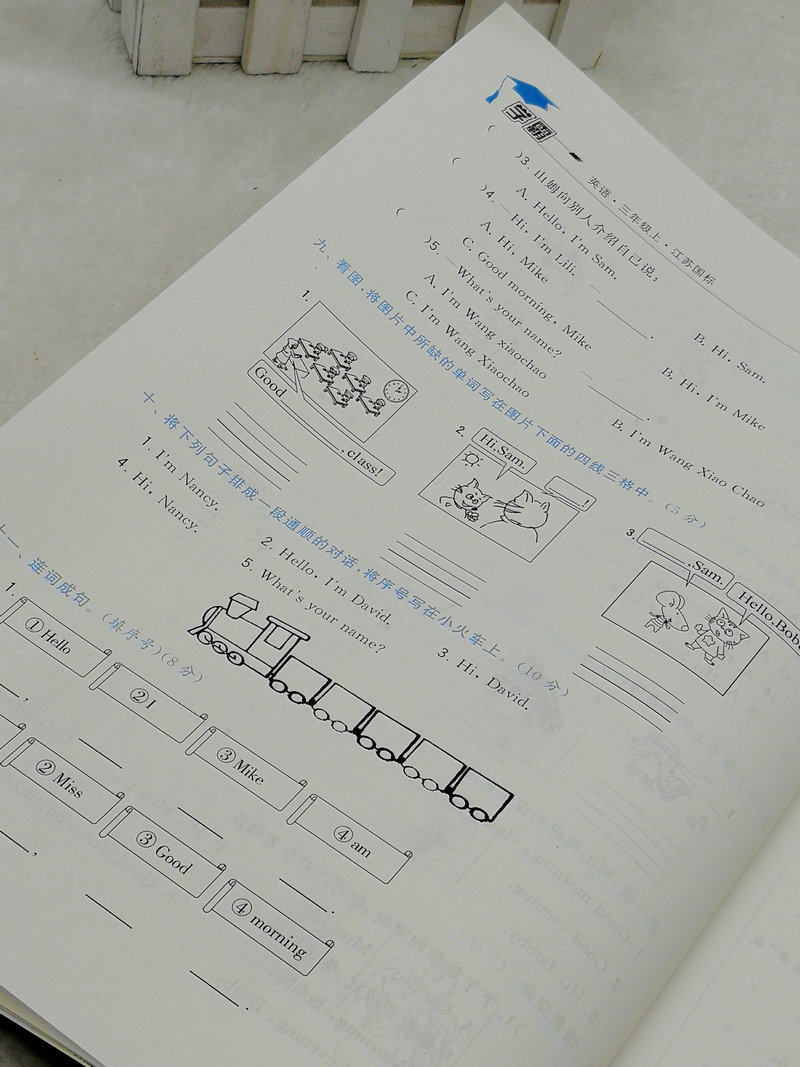 学霸
英语·三年级上·江苏国标
( )3. 山姆向别人介绍自己说：
A. Hello, I'm Sam.
B. Hi, Sam.
( )4. —Hi, I'm Lili.
—______.
A. Hi, Mike
B. Hi, I'm Mike
C. Good morning, Mike
( )5. —What's your name?
—______.
A. I'm Wang xiaochao
B. I'm Wang Xiao Chao
C. I'm Wang Xiaochao
九、看图,将图片中所缺的单词写在图片下面的四线三格中。(5分)
1.
Good ______, class!
2. Hi, Sam.
______!
3. ______, Sam.
Hello, Bobb
十、将下列句子排成一段通顺的对话,将序号写在小火车上。(10分)
1. I'm Nancy.
2. Hello, I'm David.
3. Hi, David.
4. Hi, Nancy.
5. What's your name?
十一、连词成句。(填序号)(8分)
1.
①Hello
②I
③Mike
④am
______, ______ ______ ______.
②Miss
③Good
④morning
______, ______ ______.